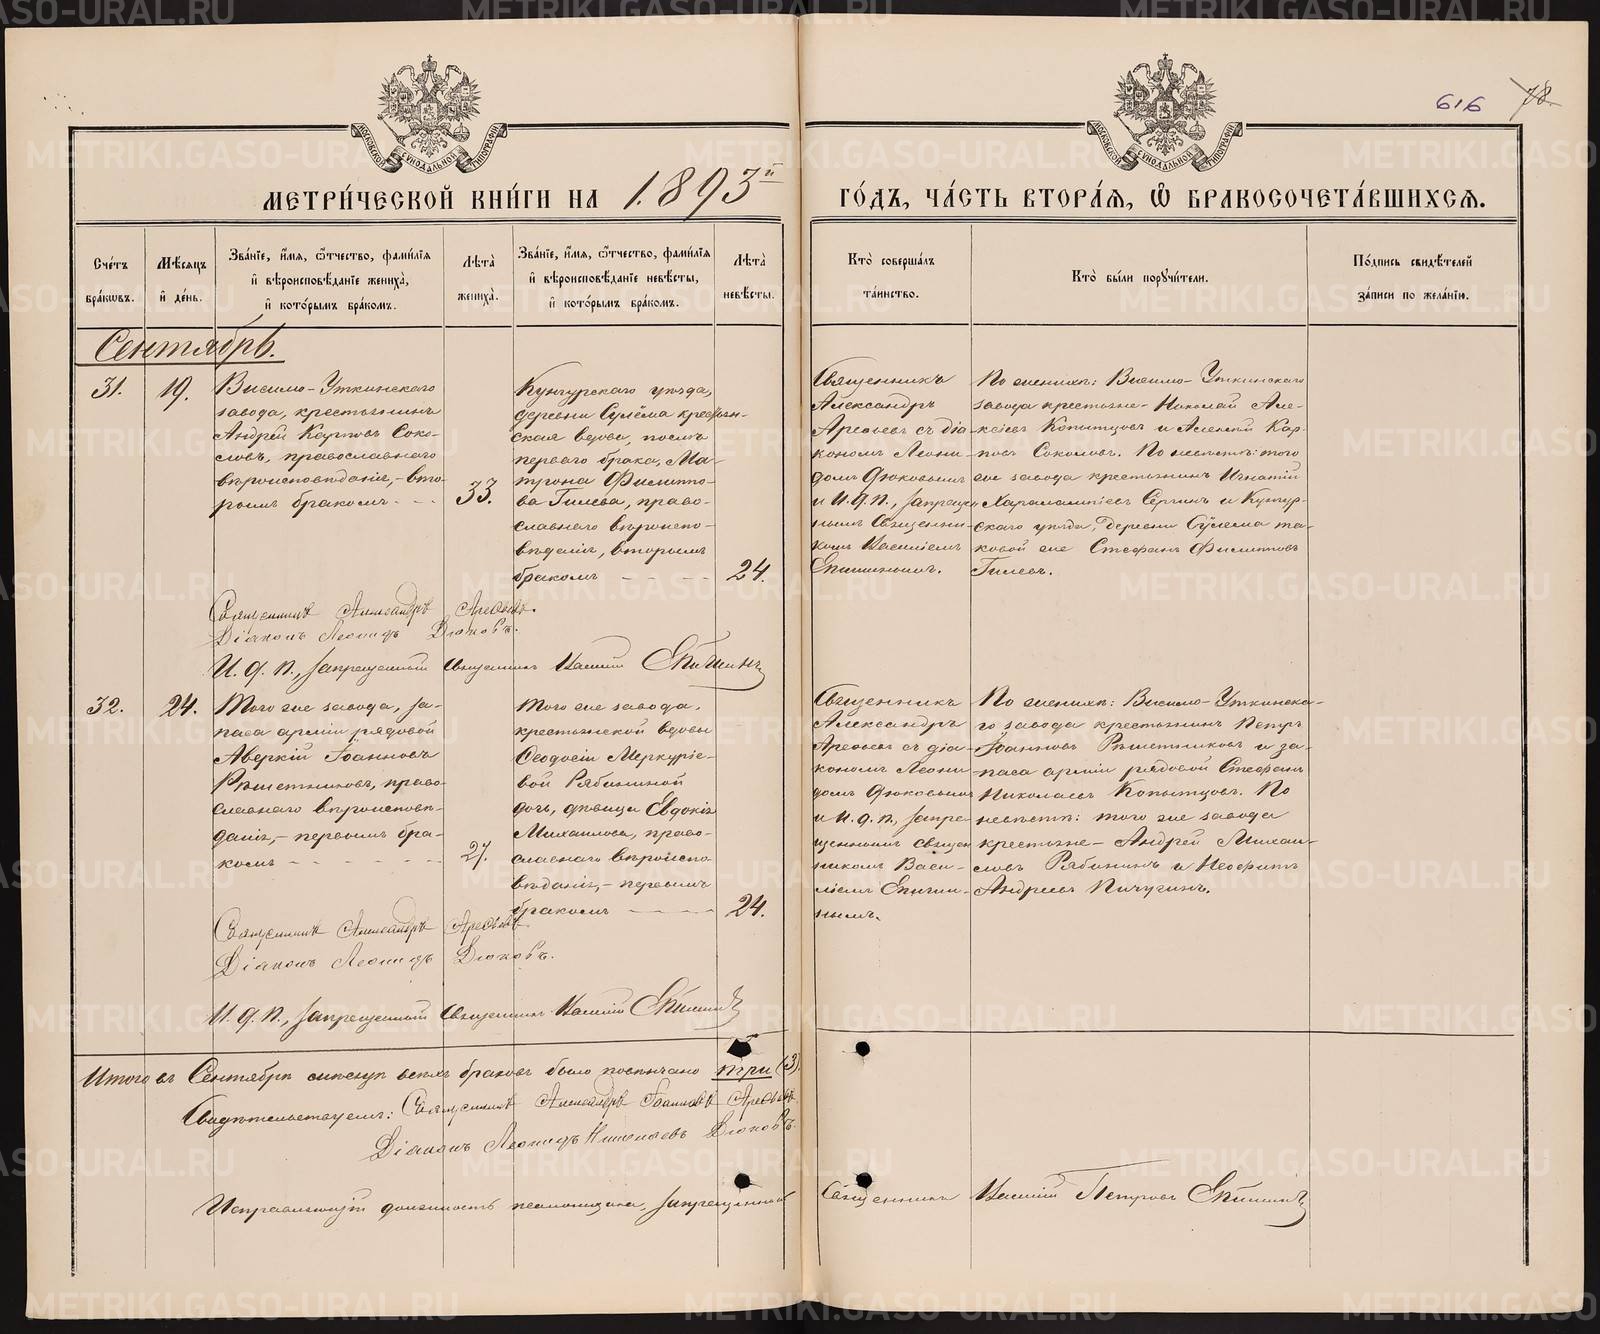 616 78
МОСКОВСКОЙ СѴНОДАЛЬНОЙ ТИПОГРАФІИ
МОСКОВСКОЙ СѴНОДАЛЬНОЙ ТИПОГРАФІИ
МЕТРИ́ЧЕСКОЙ КНИ́ГИ НА 1893й ГО́ДЪ, ЧА́СТЬ ВТОРА́Я, Ѽ БРАКОСОЧЕТА́ВШИХСЯ.
Сче́тъ бра́кѡвъ.
Мѣ́сяцъ и҆ де́нь.
Зва́нїе, и҆́мя, ѻ҆́тчество, фами́лїя
и҆ вѣроисповѣ́данїе жениха̀,
и҆ кото́рымъ бра́комъ.
Лѣта̀ жениха̀.
Зва́нїе, и҆́мя, ѻ҆́тчество, фами́лїя
и҆ вѣроисповѣ́данїе невѣ́сты,
и҆ кото́рымъ бра́комъ.
Лѣта̀ невѣ́сты.
Кто̀ соверша́лъ
та́инство.
Кто̀ бы́ли порꙋчи́тели.
По́дпись свидѣ́телей
за́писи по жела́нїю.
Сентябрь.
31. 19.
Висимо-Уткинскаго
завода, крестьянинъ
Андрей Карповъ Соко-
ловъ, православнаго
вѣроисповѣданія,- вто-
рымъ бракомъ - -
33.
Кунгурскаго уѣзда,
деревни Сулёма крестьян-
ская вдова, послѣ
перваго брака, Ма-
трона Филиппо-
ва Гилева, право-
славнаго вѣроиспо-
вѣданія, вторымъ
бракомъ - - - -
24.
Священникъ
Александръ
Арефьевъ съ діа-
кономъ Леони-
домъ Дюковымъ
и И.д.п., запрещен-
нымъ Священни-
комъ Василіемъ
Епишинымъ.
По женихѣ: Висимо-Уткинскаго
завода крестьяне - Николай Але-
ксѣевъ Копытцовъ и Алексѣй Кар-
повъ Соколовъ. По невѣстѣ: того
же завода крестьянинъ Игнатій
Харалампіевъ Сергинъ и Кунгур-
скаго уѣзда, деревни Сулема та-
ковой же Стефанъ Филипповъ
Гилевъ.
Священникъ Александръ Арефьевъ.
Діаконъ Леонидъ Дюковъ.
И.д.п., запрещенный священникъ Василій Епишинъ
32. 24.
Того же завода, за-
паса арміи рядовой
Аверкій Іоанновъ
Рѣшетниковъ, право-
славнаго вѣроисповѣ-
данія,- первымъ бра-
комъ - - - - - -
27.
Того же завода,
крестьянской вдовы
Ѳеодосіи Меркурье-
вой Рябининой
дочь, дѣвица Евдокія
Михаилова, право-
славнаго вѣроиспо-
вѣданія,- первымъ
бракомъ - - - -
24.
Священникъ
Александръ
Арефьевъ съ діа-
кономъ Леони-
домъ Дюковымъ
и И.д.п., запре-
щеннымъ священ-
никомъ Васи-
ліемъ Епиши-
нымъ.
По женихѣ: Висимо-Уткинска-
го завода крестьянинъ Петръ
Іоанновъ Рѣшетниковъ и за-
паса арміи рядовой Стефанъ
Николаевъ Копытцовъ. По
невѣстѣ: того же завода
крестьяне - Андрей Михаи-
ловъ Рябининъ и Неофитъ
Андреевъ Пичугинъ.
Священникъ Александръ Арефьевъ
Діаконъ Леонидъ Дюковъ.
И.д.п., запрещенный священникъ Василій Епишинъ
Итого въ Сентябрѣ мѣсяцѣ всѣхъ браковъ было повѣнчано три (3).
Свидѣтельствуемъ: Священникъ Александръ Іоанновъ Арефьевъ
Діаконъ Леонидъ Николаевъ Дюковъ.
Исправляющій должность псаломщика, запрещенный Священникъ Василій Петровъ Епишинъ
METRIKI.GASO-URAL.RU